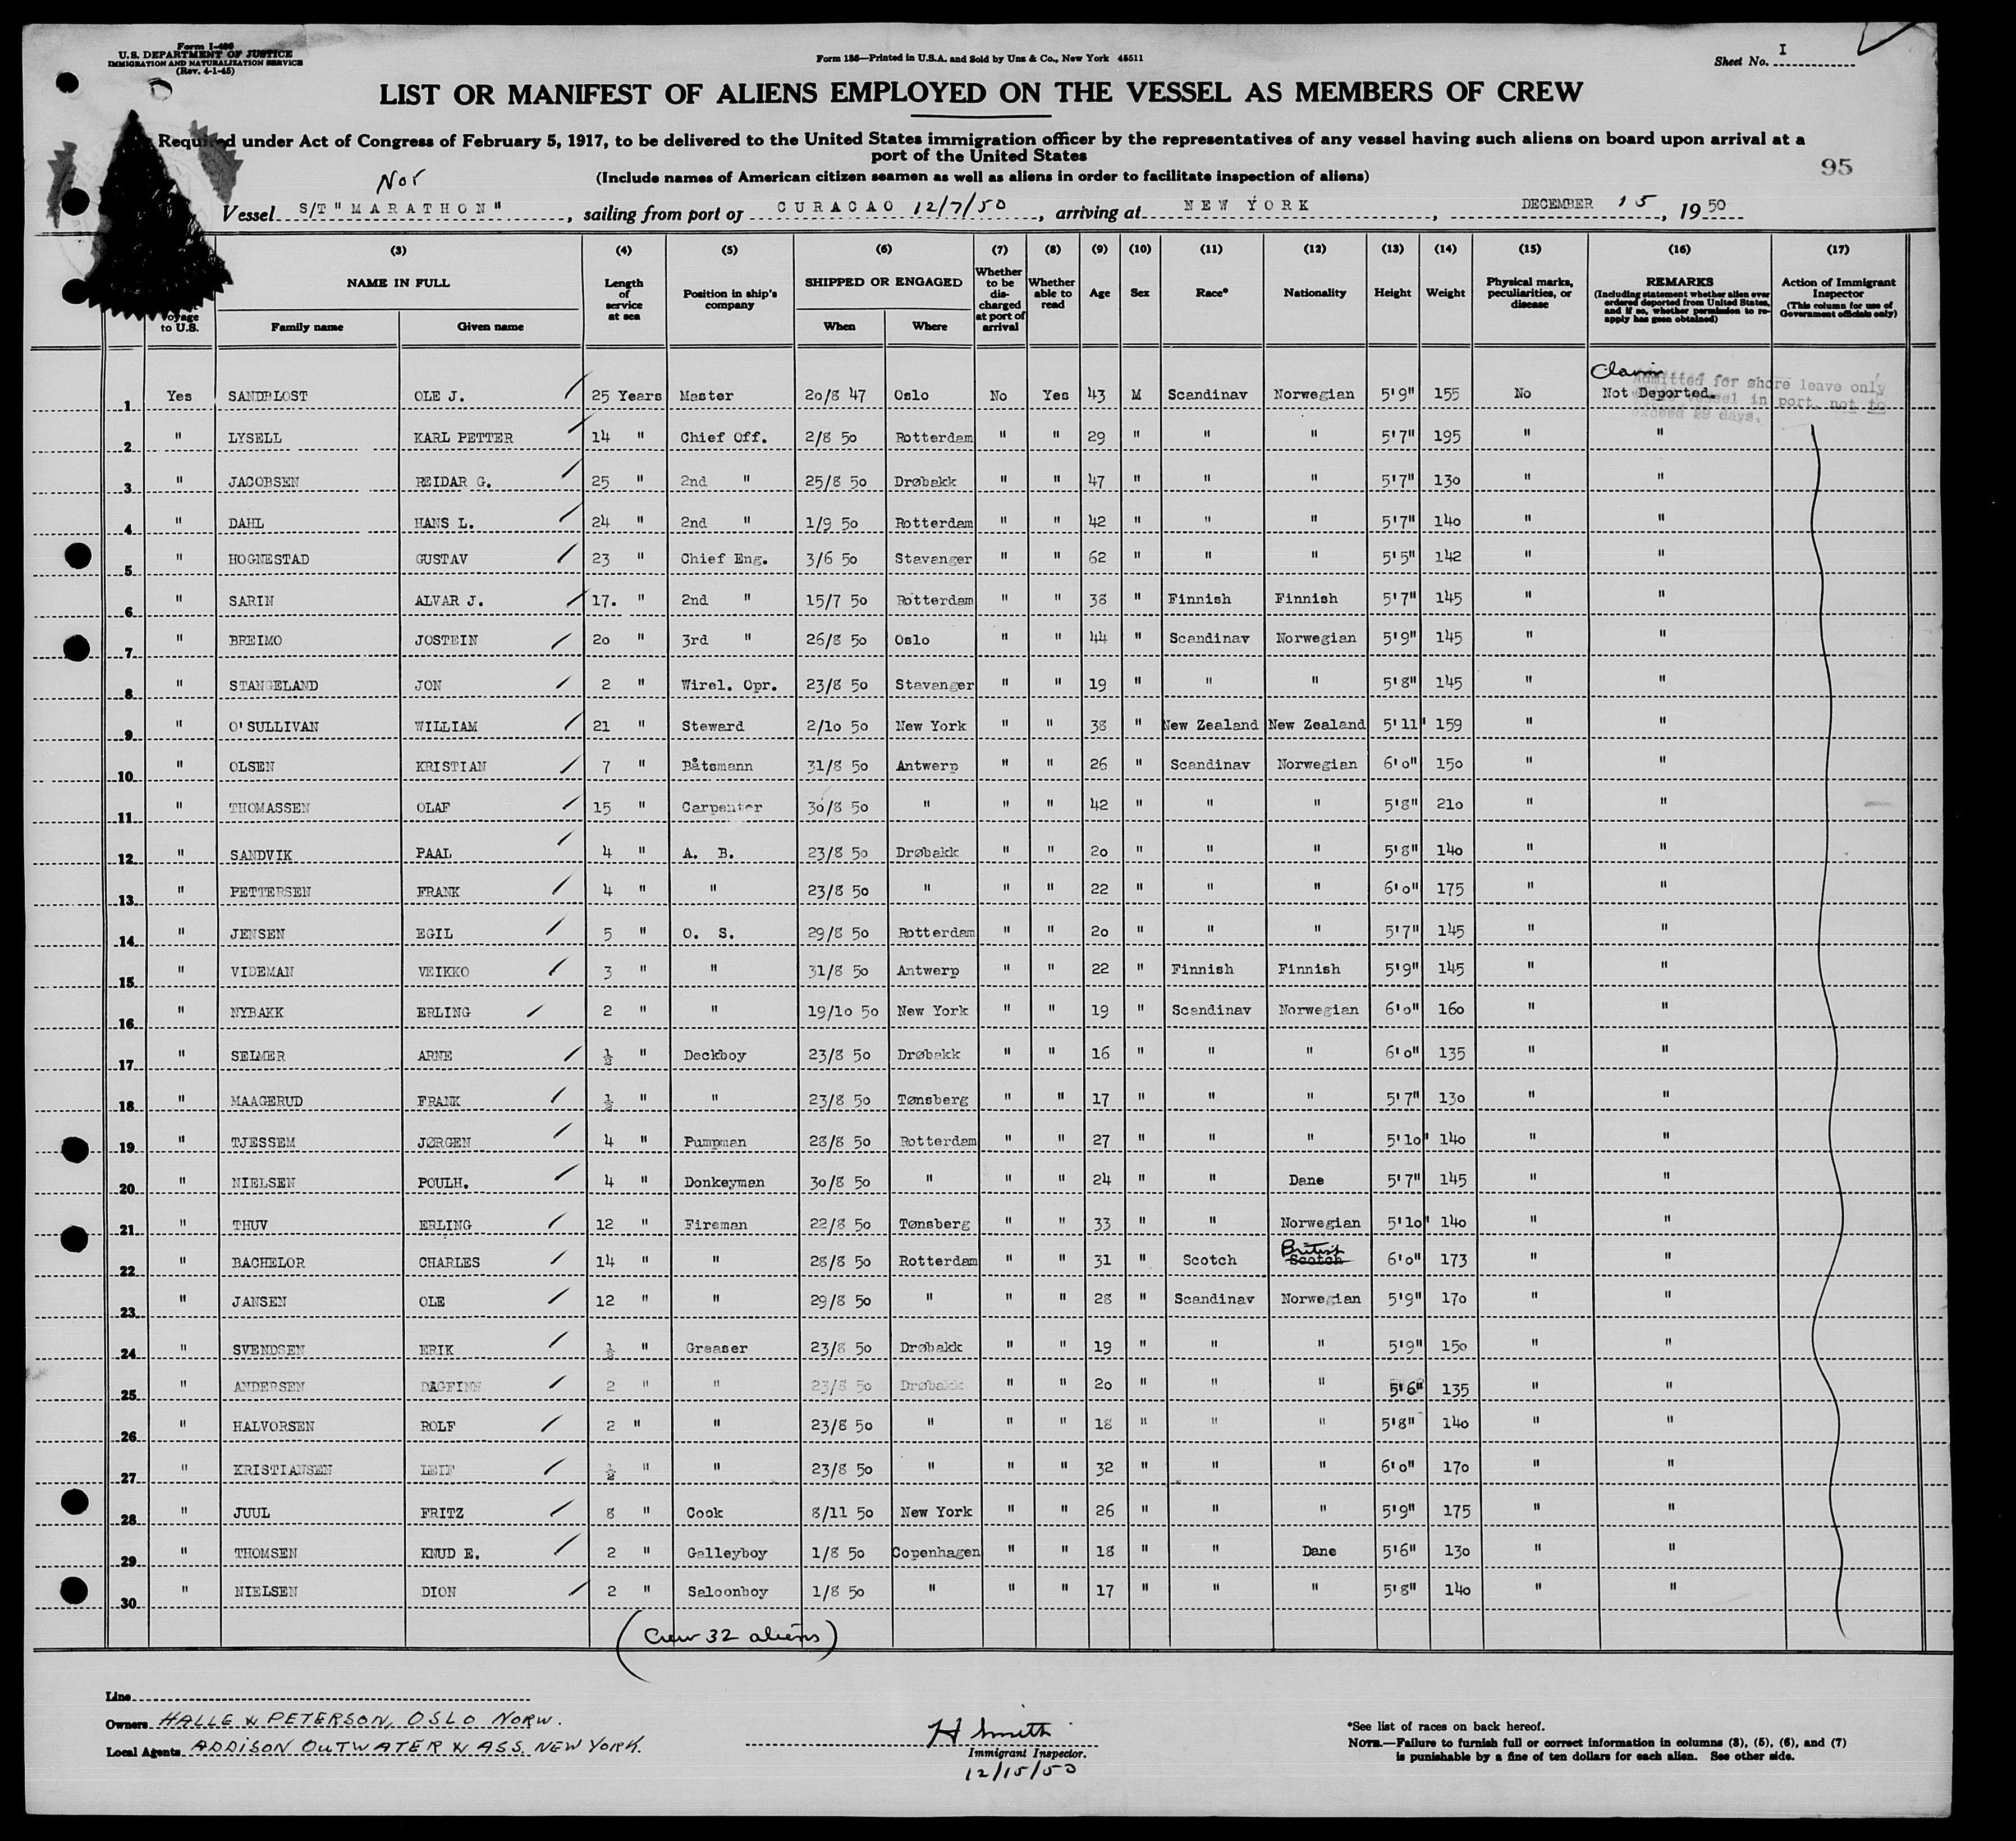 Form I-480
U.S. DEPARTMENT OF JUSTICE
IMMIGRATION AND NATURALIZATION SERVICE
(Rev. 4-1-45)
Form 136—Printed in U.S.A. and Sold by Unz & Co., New York 45511
Sheet No. I
LIST OR MANIFEST OF ALIENS EMPLOYED ON THE VESSEL AS MEMBERS OF CREW
Required under Act of Congress of February 5, 1917, to be delivered to the United States immigration officer by the representatives of any vessel having such aliens on board upon arrival at a
port of the United States
(Include names of American citizen seamen as well as aliens in order to facilitate inspection of aliens)
95
Nor
Vessel S/T "MARATHON", sailing from port of CURACAO 12/7/50, arriving at NEW YORK, DECEMBER 15, 1950
(3) (4) (5) (6) (7) (8) (9) (10) (11) (12) (13) (14) (15) (16) (17)
voyage to U.S. NAME IN FULL Family name Given name Length of service at sea Position in ship's company SHIPPED OR ENGAGED When Where Whether to be discharged at port of arrival Whether able to read Age Sex Race* Nationality Height Weight Physical marks, peculiarities, or disease REMARKS (Including statement whether alien ever ordered deported from United States, and if so, whether permission to reapply has been obtained) Action of Immigrant Inspector (This column for use of Government officials only)
Claim
Admitted for shore leave only
vessel in port, not to
exceed 29 days.
1 Yes SANDBLOST OLE J. 25 Years Master 20/8 47 Oslo No Yes 43 M Scandinav Norwegian 5'9" 155 No Not Deported.
2 " LYSELL KARL PETTER 14 " Chief Off. 2/8 50 Rotterdam " " 29 " " " 5'7" 195 " "
3 " JACOBSEN REIDAR G. 25 " 2nd " 25/8 50 Drøbakk " " 47 " " " 5'7" 130 " "
4 " DAHL HANS L. 24 " 2nd " 1/9 50 Rotterdam " " 42 " " " 5'7" 140 " "
5 " HOGNESTAD GUSTAV 23 " Chief Eng. 3/6 50 Stavanger " " 62 " " " 5'5" 142 " "
6 " SARIN ALVAR J. 17. " 2nd " 15/7 50 Rotterdam " " 38 " Finnish Finnish 5'7" 145 " "
7 " BREIMO JOSTEIN 20 " 3rd " 26/8 50 Oslo " " 44 " Scandinav Norwegian 5'9" 145 " "
8 " STANGELAND JON 2 " Wirel. Opr. 23/8 50 Stavanger " " 19 " " " 5'8" 145 " "
9 " O'SULLIVAN WILLIAM 21 " Steward 2/10 50 New York " " 38 " New Zealand New Zealand 5'11" 159 " "
10 " OLSEN KRISTIAN 7 " Båtsmann 31/8 50 Antwerp " " 26 " Scandinav Norwegian 6'0" 150 " "
11 " THOMASSEN OLAF 15 " Carpenter 30/8 50 " " " 42 " " " 5'8" 210 " "
12 " SANDVIK PAAL 4 " A. B. 23/8 50 Drøbakk " " 20 " " " 5'8" 140 " "
13 " PETTERSEN FRANK 4 " " 23/8 50 " " " 22 " " " 6'0" 175 " "
14 " JENSEN EGIL 5 " O. S. 29/8 50 Rotterdam " " 20 " " " 5'7" 145 " "
15 " VIDEMAN VEIKKO 3 " " 31/8 50 Antwerp " " 22 " Finnish Finnish 5'9" 145 " "
16 " NYBAKK ERLING 2 " " 19/10 50 New York " " 19 " Scandinav Norwegian 6'0" 160 " "
17 " SELMER ARNE ½ " Deckboy 23/8 50 Drøbakk " " 16 " " " 6'0" 135 " "
18 " MAAGERUD FRANK ½ " " 23/8 50 Tønsberg " " 17 " " " 5'7" 130 " "
19 " TJESSEM JØRGEN 4 " Pumpman 28/8 50 Rotterdam " " 27 " " " 5'10" 140 " "
20 " NIELSEN POULH. 4 " Donkeyman 30/8 50 " " " 24 " " Dane 5'7" 145 " "
21 " THUV ERLING 12 " Fireman 22/8 50 Tønsberg " " 33 " " Norwegian 5'10" 140 " "
22 " BACHELOR CHARLES 14 " " 28/8 50 Rotterdam " " 31 " Scotch British Scotch 6'0" 173 " "
23 " JANSEN OLE 12 " " 29/8 50 " " " 28 " Scandinav Norwegian 5'9" 170 " "
24 " SVENDSEN ERIK ½ " Greaser 23/8 50 Drøbakk " " 19 " " " 5'9" 150 " "
25 " ANDERSEN DAGFINN 2 " " 23/8 50 Drøbakk " " 20 " " " 5'6" 135 " "
26 " HALVORSEN ROLF 2 " " 23/8 50 " " " 18 " " " 5'8" 140 " "
27 " KRISTIANSEN LEIF ½ " " 23/8 50 " " " 32 " " " 6'0" 170 " "
28 " JUUL FRITZ 8 " Cook 8/11 50 New York " " 26 " " " 5'9" 175 " "
29 " THOMSEN KNUD E. 2 " Galleyboy 1/8 50 Copenhagen " " 18 " " Dane 5'6" 130 " "
30 " NIELSEN DION 2 " Saloonboy 1/8 50 " " " 17 " " " 5'8" 140 " "
(Crew 32 aliens)
Line
Owners HALLE & PETERSON, OSLO NORW.
Local Agents ADDISON OUTWATER & ASS. NEW YORK.
H Smith
Immigrant Inspector.
12/15/50
*See list of races on back hereof.
NOTE.—Failure to furnish full or correct information in columns (3), (5), (6), and (7)
is punishable by a fine of ten dollars for each alien. See other side.